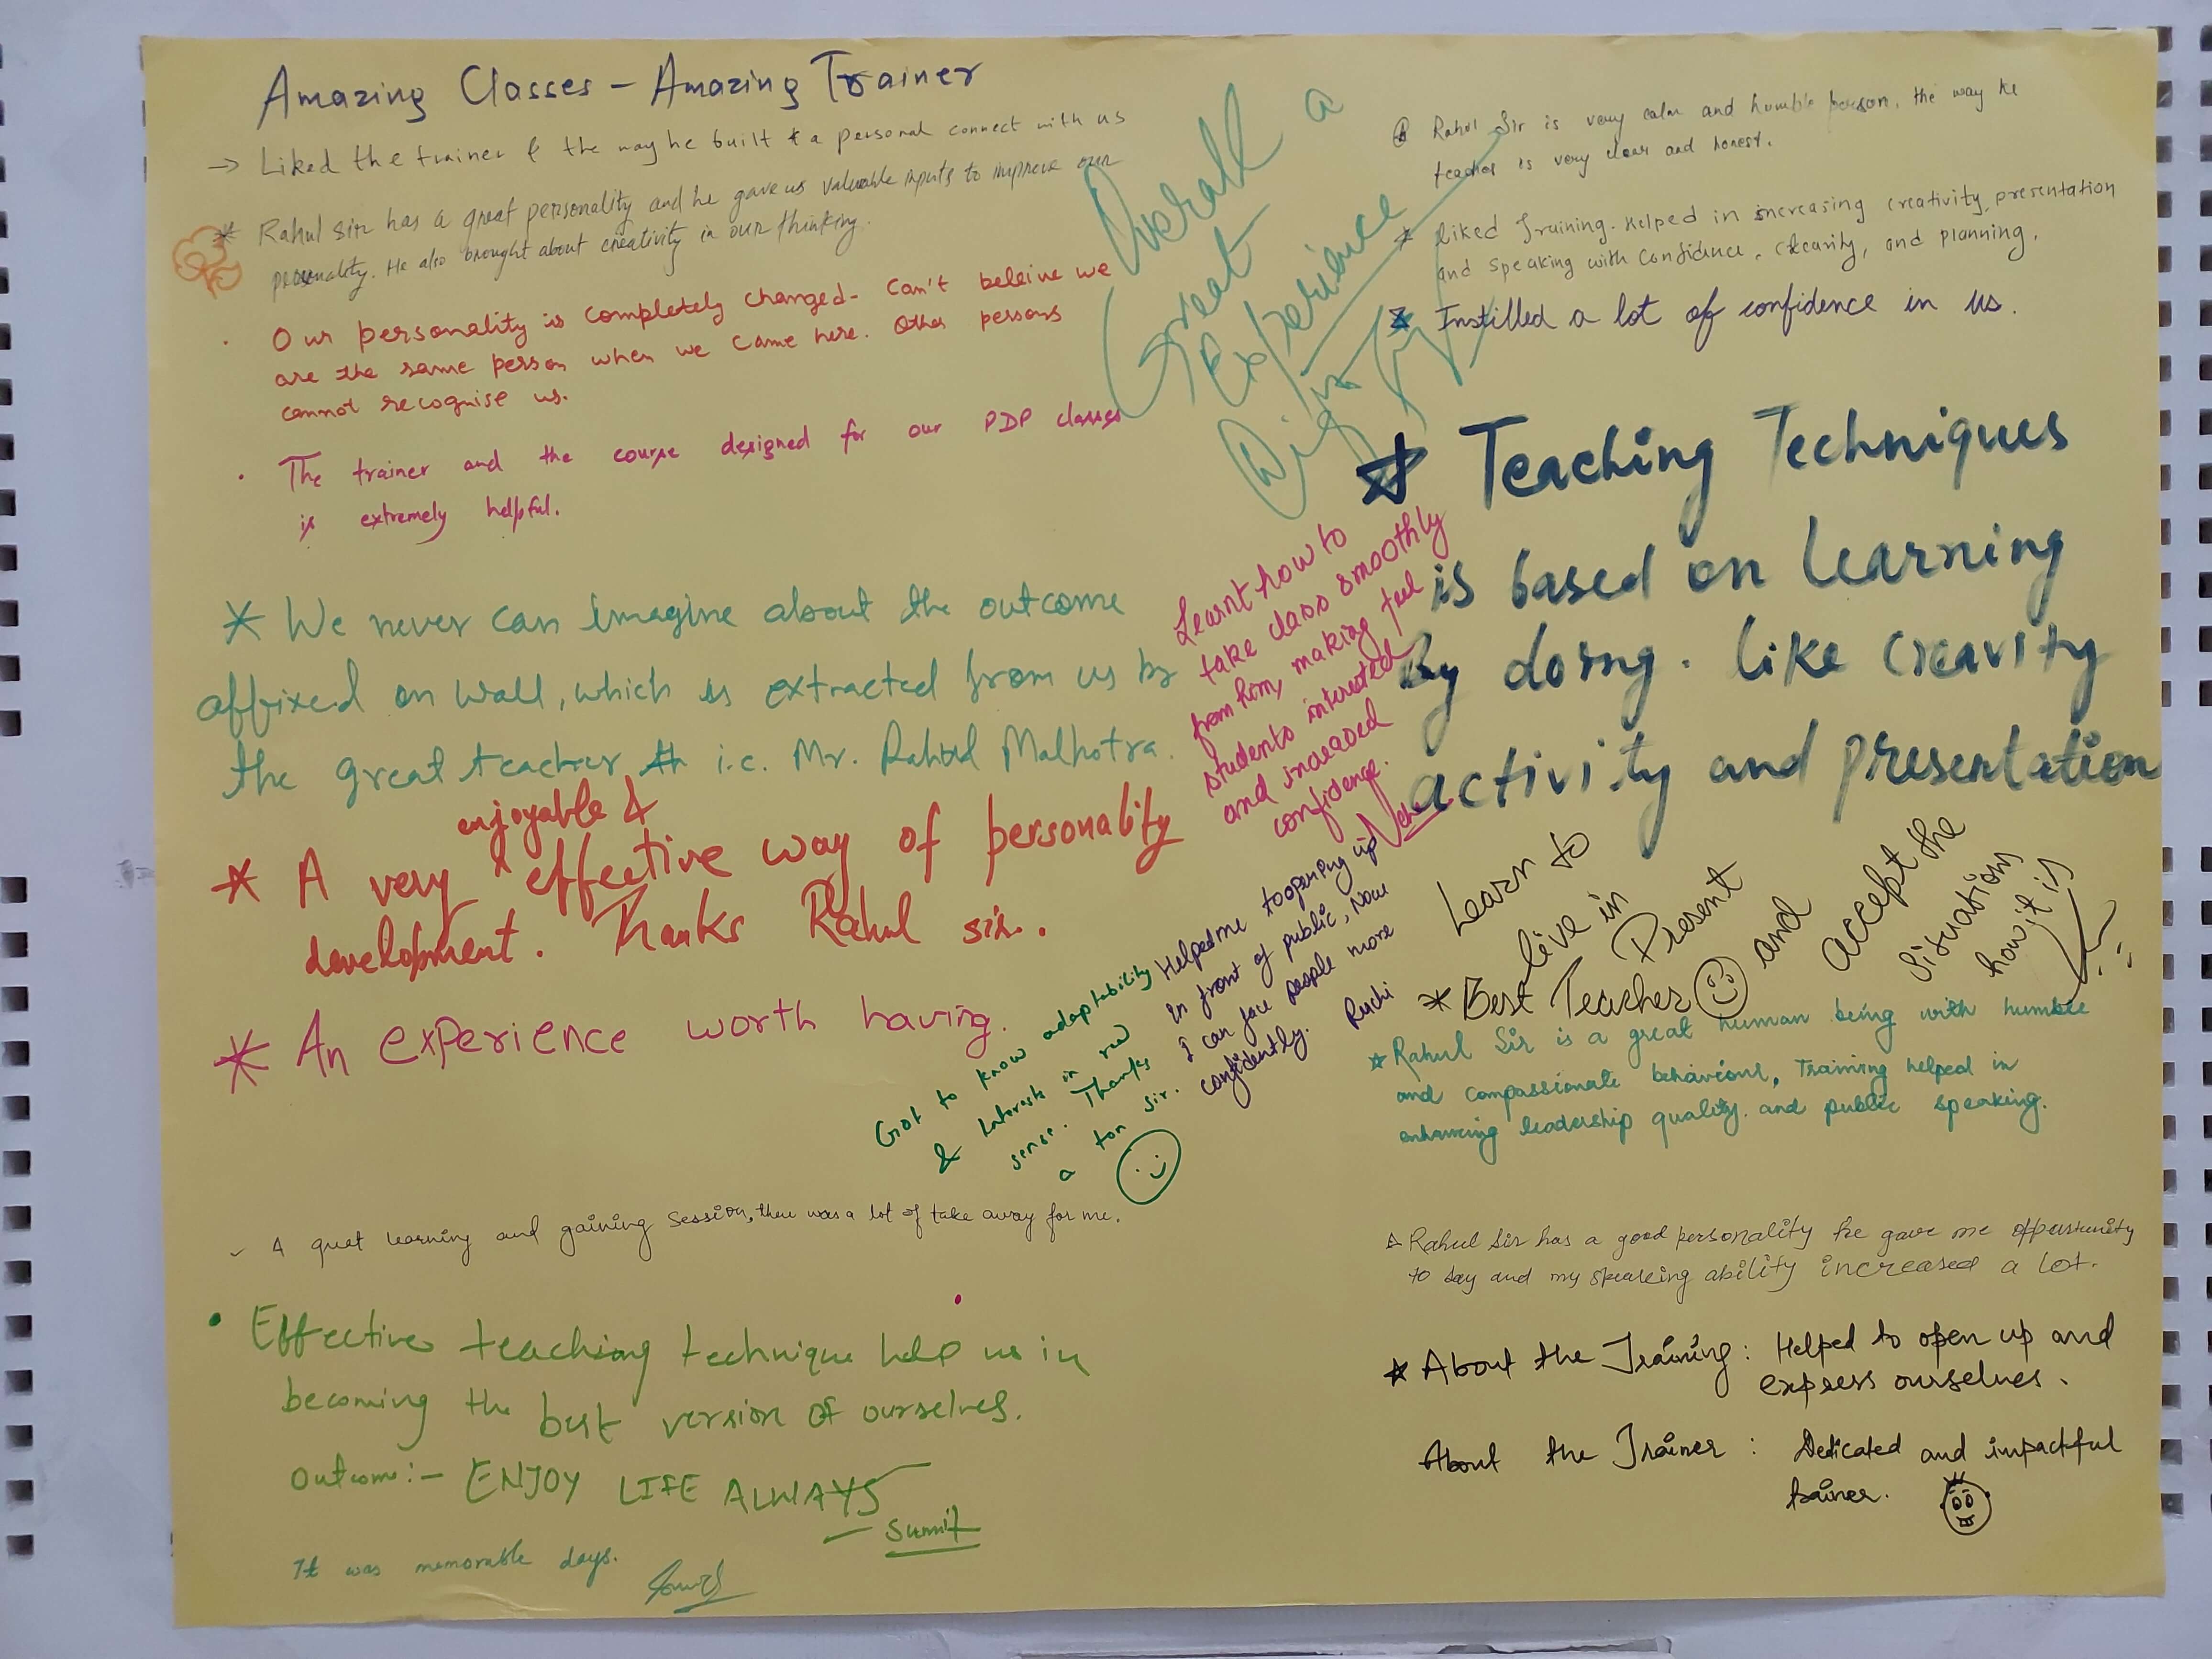 Amazing Classes - Amazing Trainer
→ Liked the trainer & the way he built a personal connect with us
* Rahul sir has a great personality and he gave us valuable inputs to improve our
personality. He also brought about creativity in our thinking.
· Our personality is completely changed- Can't beleive we
are the same person when we came here. Other persons
cannot recognise us.
· The trainer and the course designed for our PDP classes
is extremely helpful.
* We never can imagine about the outcome
affixed on wall, which is extracted from us by
the great teacher i.e. Mr. Rahul Malhotra.
enjoyable &
* A very effective way of personality
development. Thanks Rahul sir.
* An experience worth having.
Got to know adaptability
& Interests in
sense. Thanks
a ton sir.
A great learning and gaining session, there was a lot of take away for me.
• Effective teaching technique help us in
becoming the best version of ourselves.
Outcome:- ENJOY LIFE ALWAYS
- Sumit
It was memorable days.
Overall a
Great
Experience
Learnt how to
take class smoothly
from him, making feel
students interested
and increased
confidence.
Helped me to opening up
in front of public, Now
I can face people more
confidently. Ruchi
Rahul Sir is very calm and humble person. the way he
teaches is very clear and honest.
* liked Training. Helped in increasing creativity, presentation
and speaking with confidence, clearity, and planning.
* Instilled a lot of confidence in us.
* Teaching Techniques
is based on learning
By doing. like creavity
activity and presentation
Learn to
live in
Present
and
accept the
situations
how it is
* Best Teacher
* Rahul Sir is a great human being with humble
and compassionate behaviour, Training helped in
enhancing leadership quality and public speaking.
* Rahul Sir has a good personality he gave me oppurtunity
to say and my speaking ability increased a lot.
* About the Training: Helped to open up and
express ourselves.
About the Trainer: Dedicated and impactful
trainer.